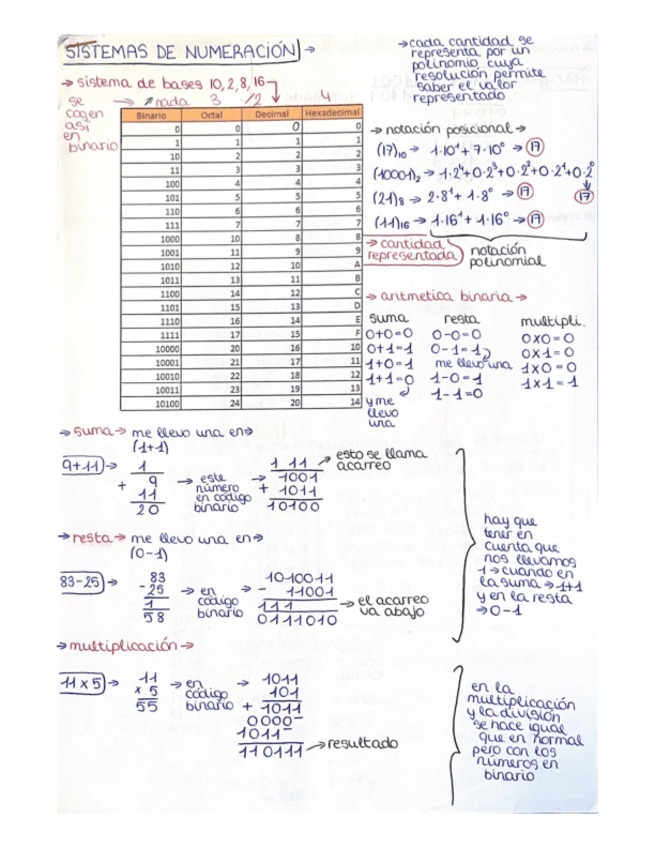 SISTEMAS DE NUMERACIÓN →
→ cada cantidad se
representa por un
polinomio cuya
resolución permite
saber el valor
representado
→ sistema de bases 10, 2, 8, 16
se
cogen
así
en
binario
→ nada 3 /2 → 4
Binario Octal Decimal Hexadecimal
0 0 0 0
1 1 1 1
10 2 2 2
11 3 3 3
100 4 4 4
101 5 5 5
110 6 6 6
111 7 7 7
1000 10 8 8
1001 11 9 9
1010 12 10 A
1011 13 11 B
1100 14 12 C
1101 15 13 D
1110 16 14 E
1111 17 15 F
10000 20 16 10
10001 21 17 11
10010 22 18 12
10011 23 19 13
10100 24 20 14
→ notación posicional →
(17)₁₀ → 1·10¹ + 7·10⁰ → 17
(10001)₂ → 1·2⁴+0·2³+0·2²+0·2¹+0·2⁰
17
(21)₈ → 2·8¹ + 1·8⁰ → 17
(11)₁₆ → 1·16¹ + 1·16⁰ → 17
→ cantidad
representada
notación
polinomial
→ aritmetica binaria →
suma resta multipli.
0+0=0 0-0=0 0x0=0
0+1=1 0-1=1 0x1=0
1+0=1 me llevo una 1x0=0
1+1=0 1-0=1 1x1=1
1-1=0
y me
llevo
una
→ suma → me llevo una en →
(1+1)
9+11 →
1
9
+ 11
20
→ este
número
en código
binario
→
1 11
1001
+ 1011
10100
→ esto se llama
acarreo
→ resta → me llevo una en →
(0-1)
83-25 →
83
-25
1
58
→ en
código
binario
→
1010011
- 11001
111
0111010
→ el acarreo
va abajo
hay que
tener en
cuenta que
nos llevamos
1 → cuando en
la suma → 1+1
y en la resta
→ 0-1
→ multiplicación →
11 x 5 →
11
x 5
55
→ en
código
binario
→
1011
101
+ 1011
0000-
1011-
110111 → resultado
en la
multiplicación
y la división
se hace igual
que en normal
pero con los
números en
binario